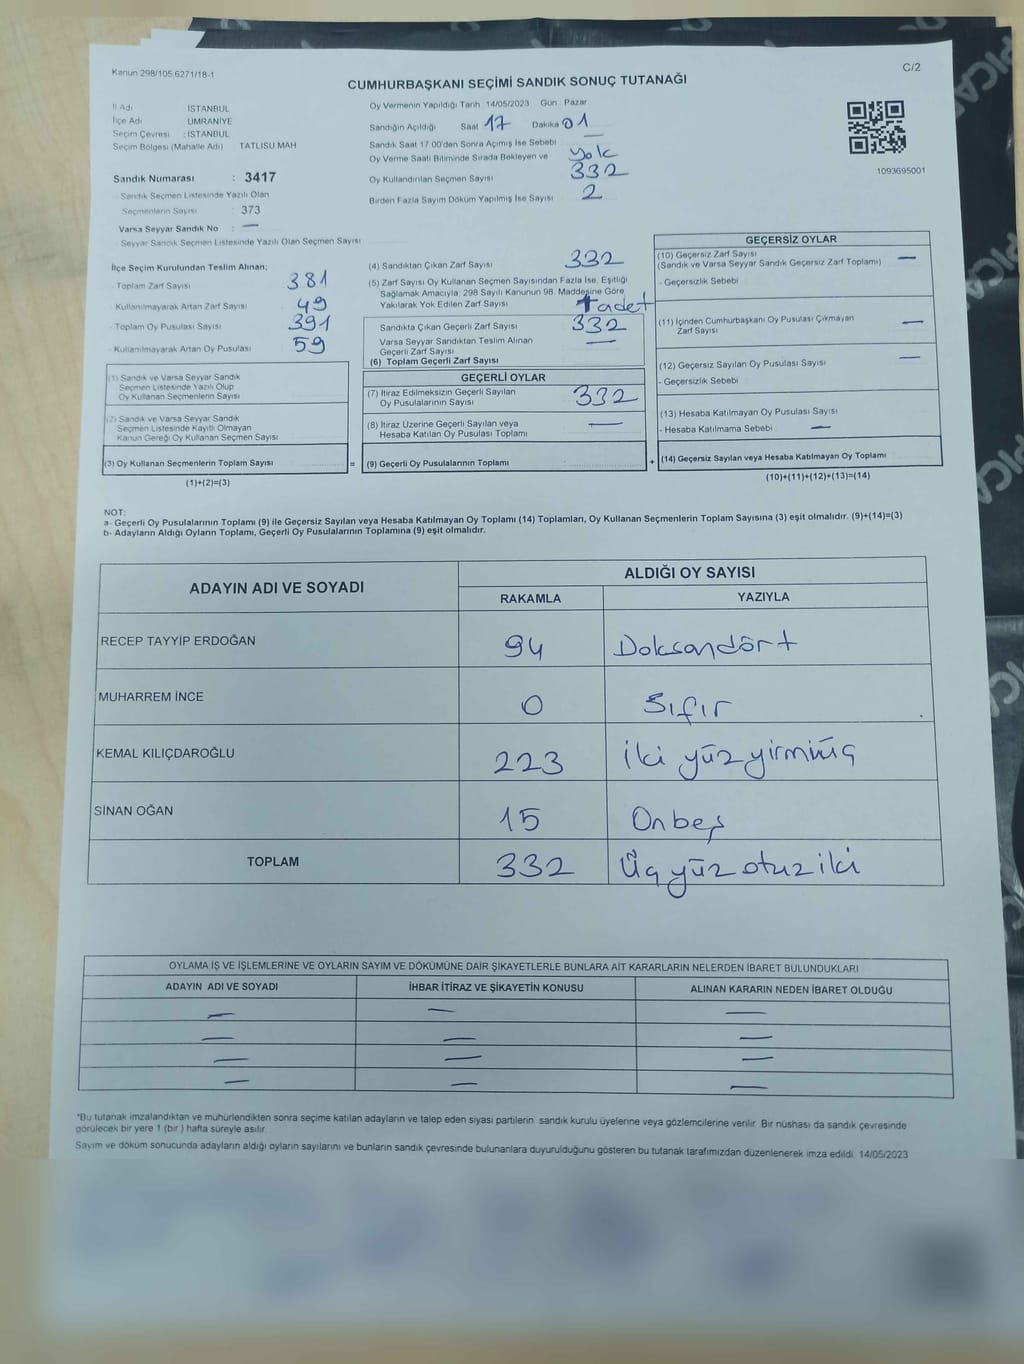 Kanun 298/105.6271/18-1
C/2
CUMHURBAŞKANI SEÇİMİ SANDIK SONUÇ TUTANAĞI
İl Adı İSTANBUL
İlçe Adı ÜMRANİYE
Seçim Çevresi : İSTANBUL
Seçim Bölgesi (Mahalle Adı) TATLISU MAH
Sandık Numarası : 3417
Sandık Seçmen Listesinde Yazılı Olan
Seçmenlerin Sayısı : 373
Varsa Seyyar Sandık No : —
Seyyar Sandık Seçmen Listesinde Yazılı Olan Seçmen Sayısı
Oy Vermenin Yapıldığı Tarih 14/05/2023 Gün : Pazar
Sandığın Açıldığı Saat 17 Dakika 01
Sandık Saat 17 00'den Sonra Açımış İse Sebebi —
Oy Verme Saati Bitiminde Sırada Bekleyen ve yok
Oy Kullandırılan Seçmen Sayısı 332
Birden Fazla Sayım Döküm Yapılmış İse Sayısı 2
1093695001
İlçe Seçim Kurulundan Teslim Alınan;
Toplam Zarf Sayısı 381
Kullanılmayarak Artan Zarf Sayısı 49
Toplam Oy Pusulası Sayısı 391
Kullanılmayarak Artan Oy Pusulası 59
(1) Sandık ve Varsa Seyyar Sandık
Seçmen Listesinde Yazılı Olup
Oy Kullanan Seçmenlerin Sayısı
(2) Sandık ve Varsa Seyyar Sandık
Seçmen Listesinde Kayıtlı Olmayan
Kanun Gereği Oy Kullanan Seçmen Sayısı
(3) Oy Kullanan Seçmenlerin Toplam Sayısı
(1)+(2)=(3)
=
(4) Sandıktan Çıkan Zarf Sayısı 332
(5) Zarf Sayısı Oy Kullanan Seçmen Sayısından Fazla İse, Eşitliği
Sağlamak Amacıyla, 298 Sayılı Kanunun 98. Maddesine Göre
Yakılarak Yok Edilen Zarf Sayısı
Sandıkta Çıkan Geçerli Zarf Sayısı 332
Varsa Seyyar Sandıktan Teslim Alınan
Geçerli Zarf Sayısı —
(6) Toplam Geçerli Zarf Sayısı
GEÇERLİ OYLAR
(7) İtiraz Edilmeksizin Geçerli Sayılan
Oy Pusulalarının Sayısı 332
(8) İtiraz Üzerine Geçerli Sayılan veya
Hesaba Katılan Oy Pusulası Toplamı —
(9) Geçerli Oy Pusulalarının Toplamı
+
GEÇERSİZ OYLAR
(10) Geçersiz Zarf Sayısı
(Sandık ve Varsa Seyyar Sandık Geçersiz Zarf Toplamı) —
- Geçersizlik Sebebi
(11) İçinden Cumhurbaşkanı Oy Pusulası Çıkmayan
Zarf Sayısı —
(12) Geçersiz Sayılan Oy Pusulası Sayısı —
- Geçersizlik Sebebi
(13) Hesaba Katılmayan Oy Pusulası Sayısı
- Hesaba Katılmama Sebebi —
(14) Geçersiz Sayılan veya Hesaba Katılmayan Oy Toplamı
(10)+(11)+(12)+(13)=(14)
NOT:
a- Geçerli Oy Pusulalarının Toplamı (9) ile Geçersiz Sayılan veya Hesaba Katılmayan Oy Toplamı (14) Toplamları, Oy Kullanan Seçmenlerin Toplam Sayısına (3) eşit olmalıdır. (9)+(14)=(3)
b- Adayların Aldığı Oyların Toplamı, Geçerli Oy Pusulalarının Toplamına (9) eşit olmalıdır.
ADAYIN ADI VE SOYADI
ALDIĞI OY SAYISI
RAKAMLA YAZIYLA
RECEP TAYYİP ERDOĞAN 94 Doksandört
MUHARREM İNCE 0 Sıfır
KEMAL KILIÇDAROĞLU 223 iki yüz yirmiüç
SİNAN OĞAN 15 Onbeş
TOPLAM 332 Üç yüz otuz iki
OYLAMA İŞ VE İŞLEMLERİNE VE OYLARIN SAYIM VE DÖKÜMÜNE DAİR ŞİKAYETLERLE BUNLARA AİT KARARLARIN NELERDEN İBARET BULUNDUKLARI
ADAYIN ADI VE SOYADI İHBAR İTİRAZ VE ŞİKAYETİN KONUSU ALINAN KARARIN NEDEN İBARET OLDUĞU
— — —
— — —
— — —
— — —
*Bu tutanak imzalandıktan ve mühürlendikten sonra seçime katılan adayların ve talep eden siyasi partilerin sandık kurulu üyelerine veya gözlemcilerine verilir. Bir nüshası da sandık çevresinde
görülecek bir yere 1 (bir) hafta süreyle asılır
Sayım ve döküm sonucunda adayların aldığı oyların sayılarını ve bunların sandık çevresinde bulunanlara duyurulduğunu gösteren bu tutanak tarafımızdan düzenlenerek imza edildi. 14/05/2023